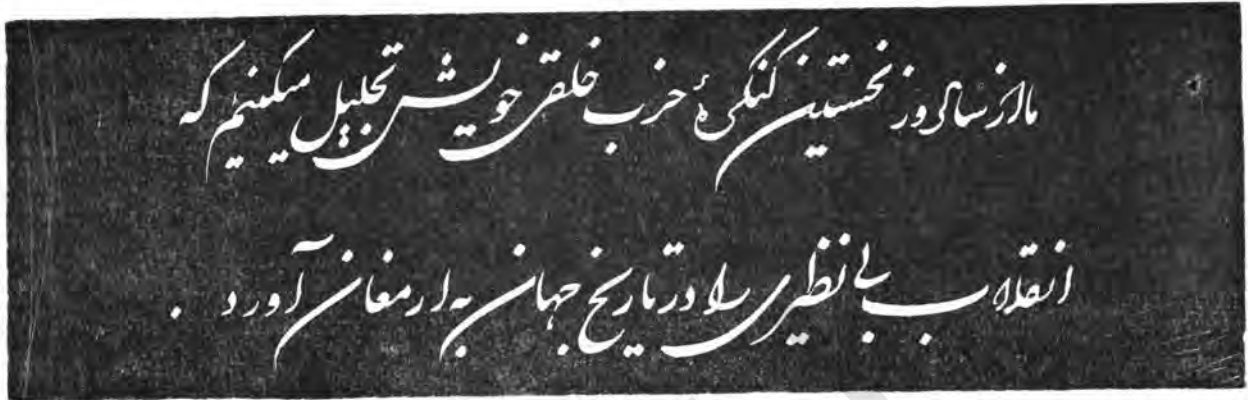 ما از سالروز نخستین کنگرهٔ حزب خلقی خویش تجلیل میکنیم که
انقلاب بی نظیری را در تاریخ جهان به ارمغان آورد .